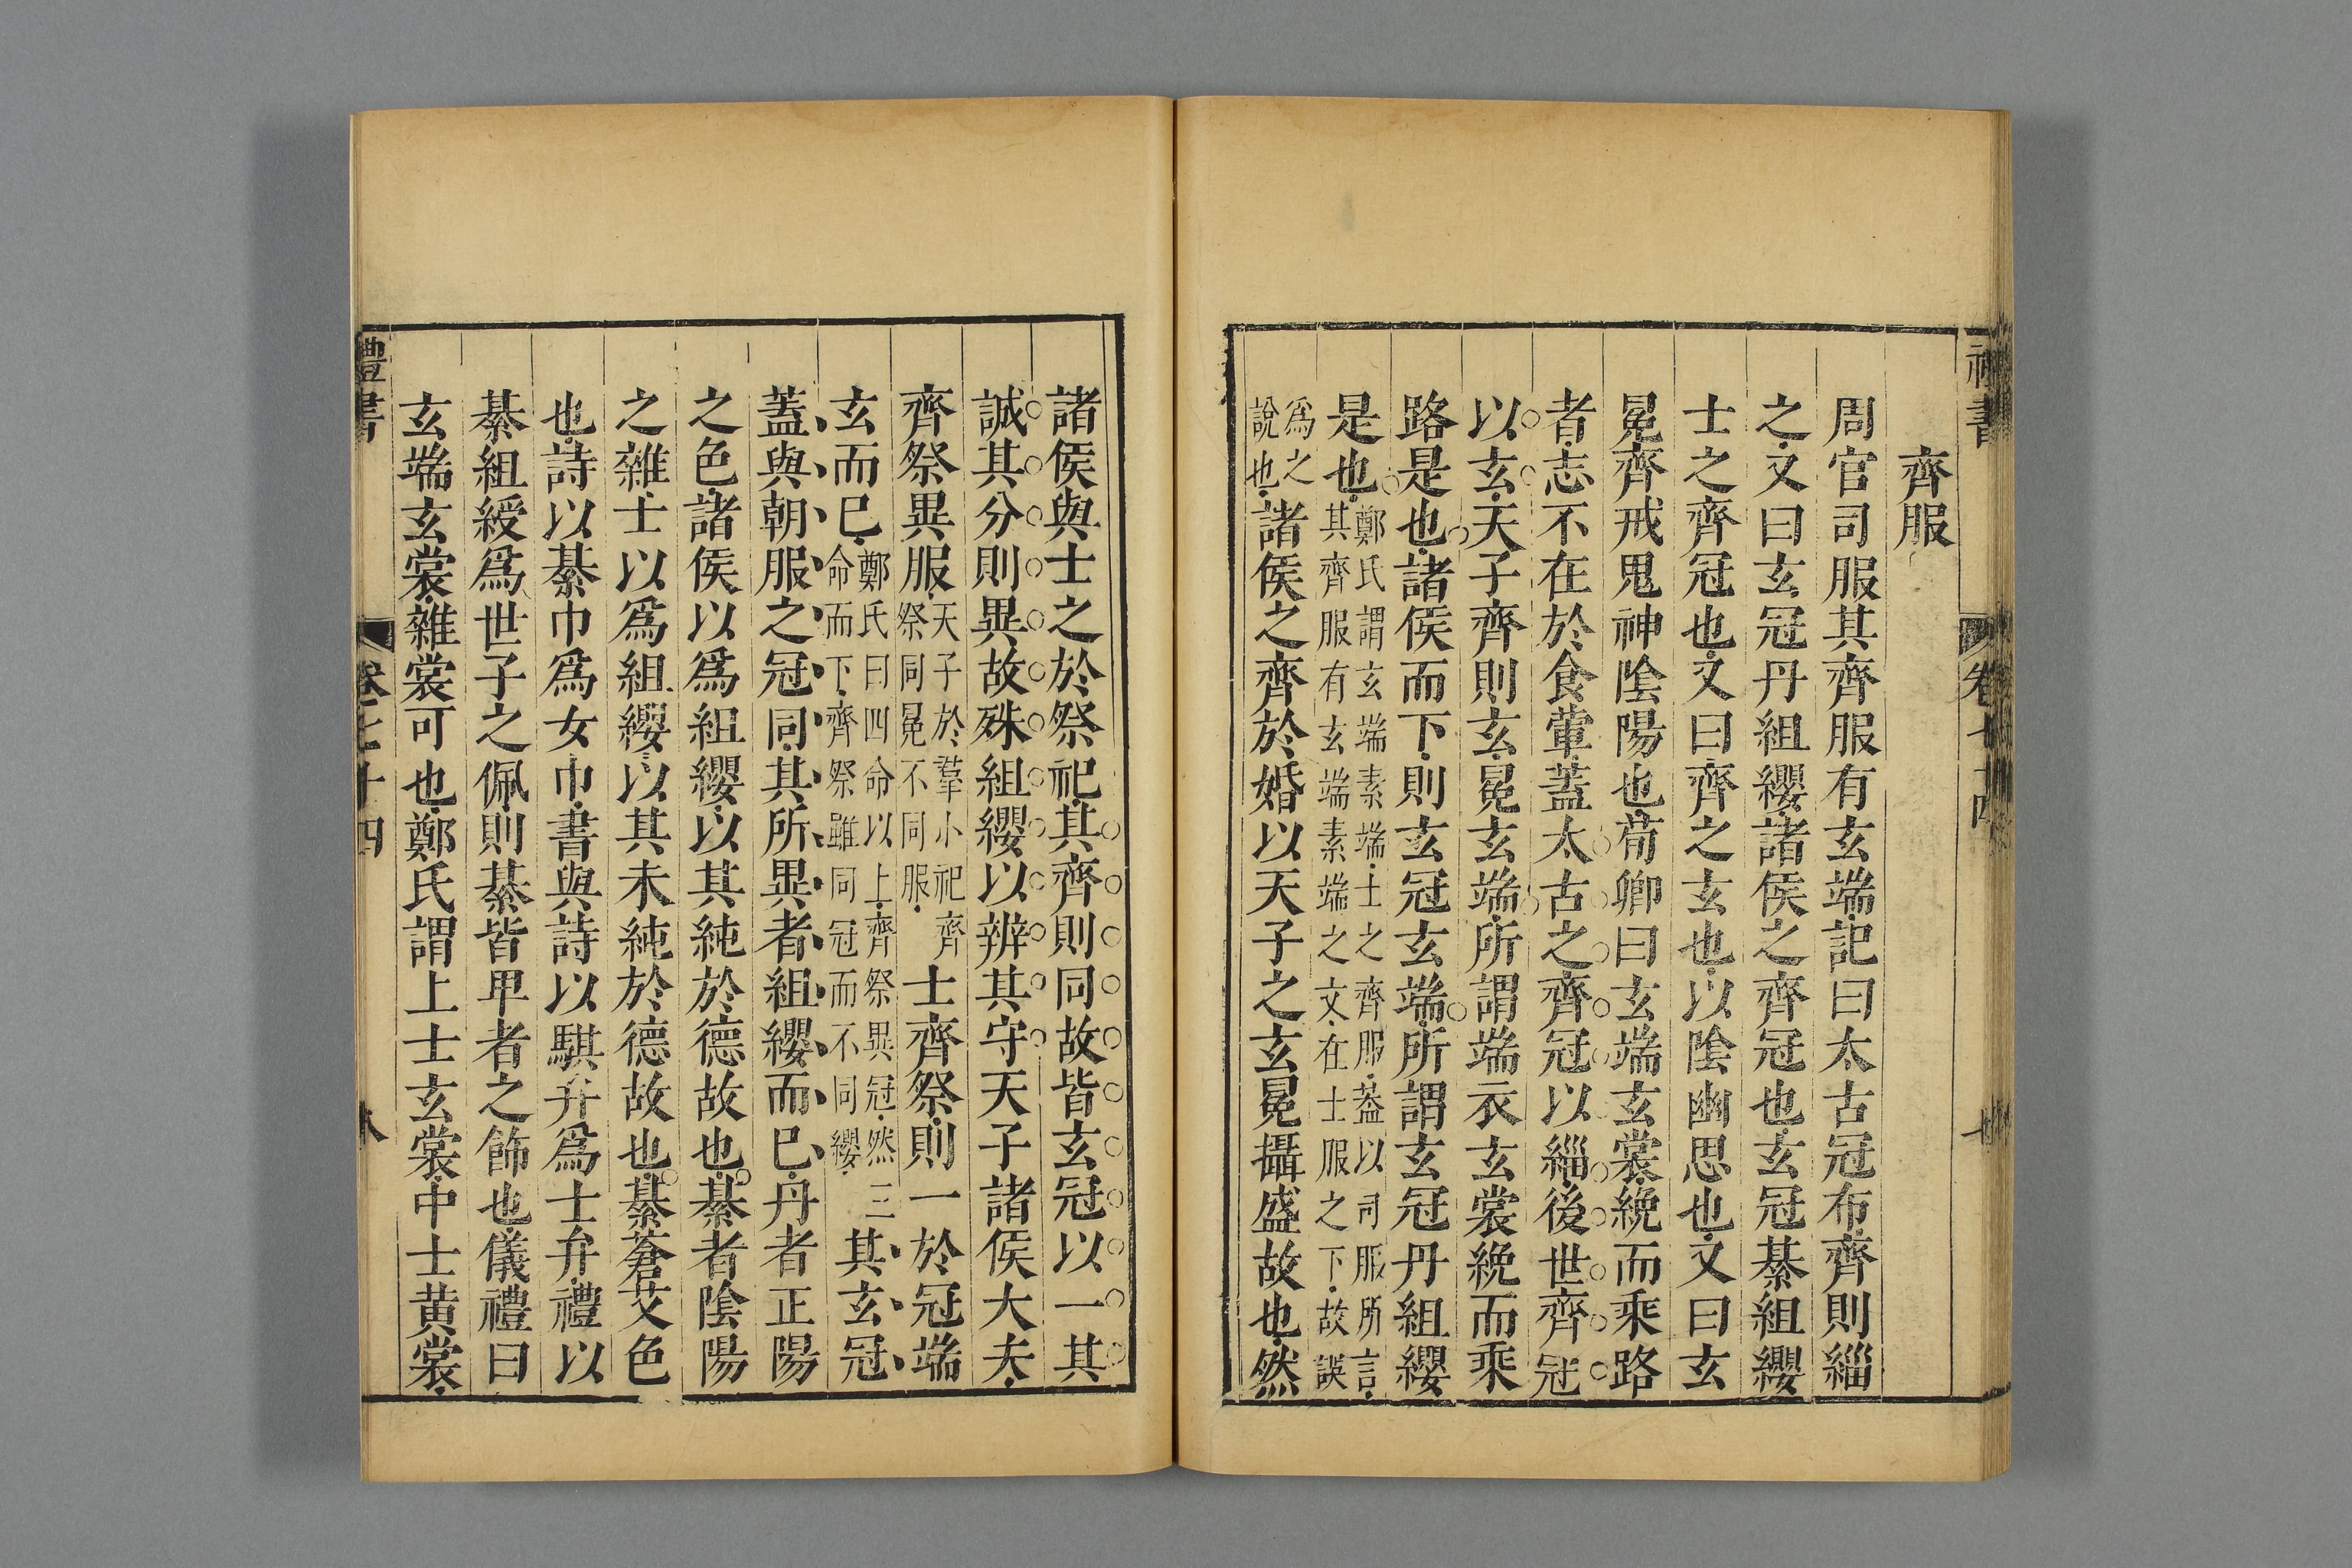 齊服
周官司服其齊服有玄端記曰太古冠布齊則緇
之又曰玄冠丹組纓諸侯之齊冠也玄冠綦組纓
士之齊冠也又曰齊之玄也以陰幽思也又曰玄
冕齊戒鬼神陰陽也荀卿曰玄端玄裳絻而乘路
者志不在於食葷蓋太古之齊冠以緇後世齊冠
以玄天子齊則玄冕玄端所謂端衣玄裳絻而乘
路是也諸侯而下則玄冠玄端所謂玄冠丹組纓
是也鄭氏謂玄端素端士之齊服葢以司服所言
其齊服有玄端素端之文在士服之下故誤
為之
說也諸侯之齊於婚以天子之玄冕攝盛故也然
諸侯與士之於祭祀其齊則同故皆玄冠以一其
誠其分則異故殊組纓以辨其守天子諸侯大夫
齊祭異服天子於羣小祀齊
祭同冕不同服士齊祭則一於冠端
玄而已鄭氏曰四命以上齊祭異冠然三
命而下齊祭雖同冠而不同纓其玄冠
蓋與朝服之冠同其所異者組纓而已丹者正陽
之色諸侯以爲組纓以其純於德故也綦者陰陽
之雜士以爲組纓以其未純於德故也綦蒼艾色
也詩以綦巾爲女巾書與詩以騏弁爲士弁禮以
綦組綬爲世子之佩則綦皆卑者之飾也儀禮曰
玄端玄裳雜裳可也鄭氏謂上士玄裳中士黃裳
禮書
卷七十四